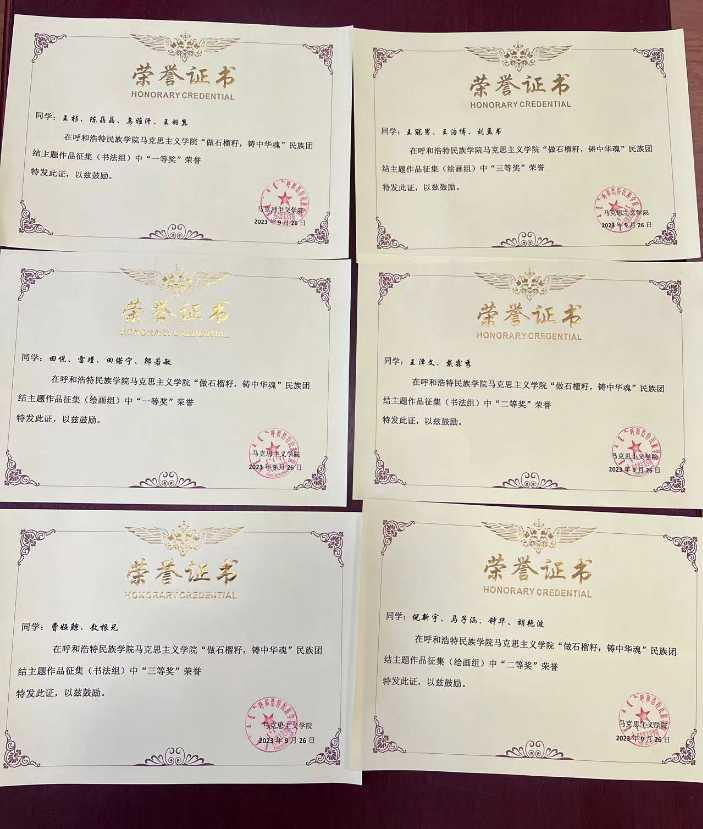 荣誉证书
HONORARY CREDENTIAL
同学：王杉、陈磊磊、
在呼和浩特民族学院马克思主义学院“做石榴籽，铸中华魂”民族团
结主题作品征集（书法组）中“一等奖”荣誉
特发此证，以兹鼓励。
马克思主义学院
2023年9月26日
荣誉证书
HONORARY CREDENTIAL
同学：王冠男、王治博、刘孟书
在呼和浩特民族学院马克思主义学院“做石榴籽，铸中华魂”民族团
结主题作品征集（绘画组）中“三等奖”荣誉
特发此证，以兹鼓励。
马克思主义学院
2023年9月26日
荣誉证书
HONORARY CREDENTIAL
同学：田悦、雷瑾、田偌宁、郭若敏
在呼和浩特民族学院马克思主义学院“做石榴籽，铸中华魂”民族团
结主题作品征集（绘画组）中“一等奖”荣誉
特发此证，以兹鼓励。
马克思主义学院
2023年9月26日
荣誉证书
HONORARY CREDENTIAL
同学：王津文、
在呼和浩特民族学院马克思主义学院“做石榴籽，铸中华魂”民族团
结主题作品征集（书法组）中“二等奖”荣誉
特发此证，以兹鼓励。
马克思主义学院
2023年9月26日
荣誉证书
HONORARY CREDENTIAL
同学：敖根元
在呼和浩特民族学院马克思主义学院“做石榴籽，铸中华魂”民族团
结主题作品征集（书法组）中“三等奖”荣誉
特发此证，以兹鼓励。
马克思主义学院
2023年9月26日
荣誉证书
HONORARY CREDENTIAL
同学：倪新宇、马子涵、钟华、胡艳波
在呼和浩特民族学院马克思主义学院“做石榴籽，铸中华魂”民族团
结主题作品征集（绘画组）中“二等奖”荣誉
特发此证，以兹鼓励。
马克思主义学院
2023年9月26日